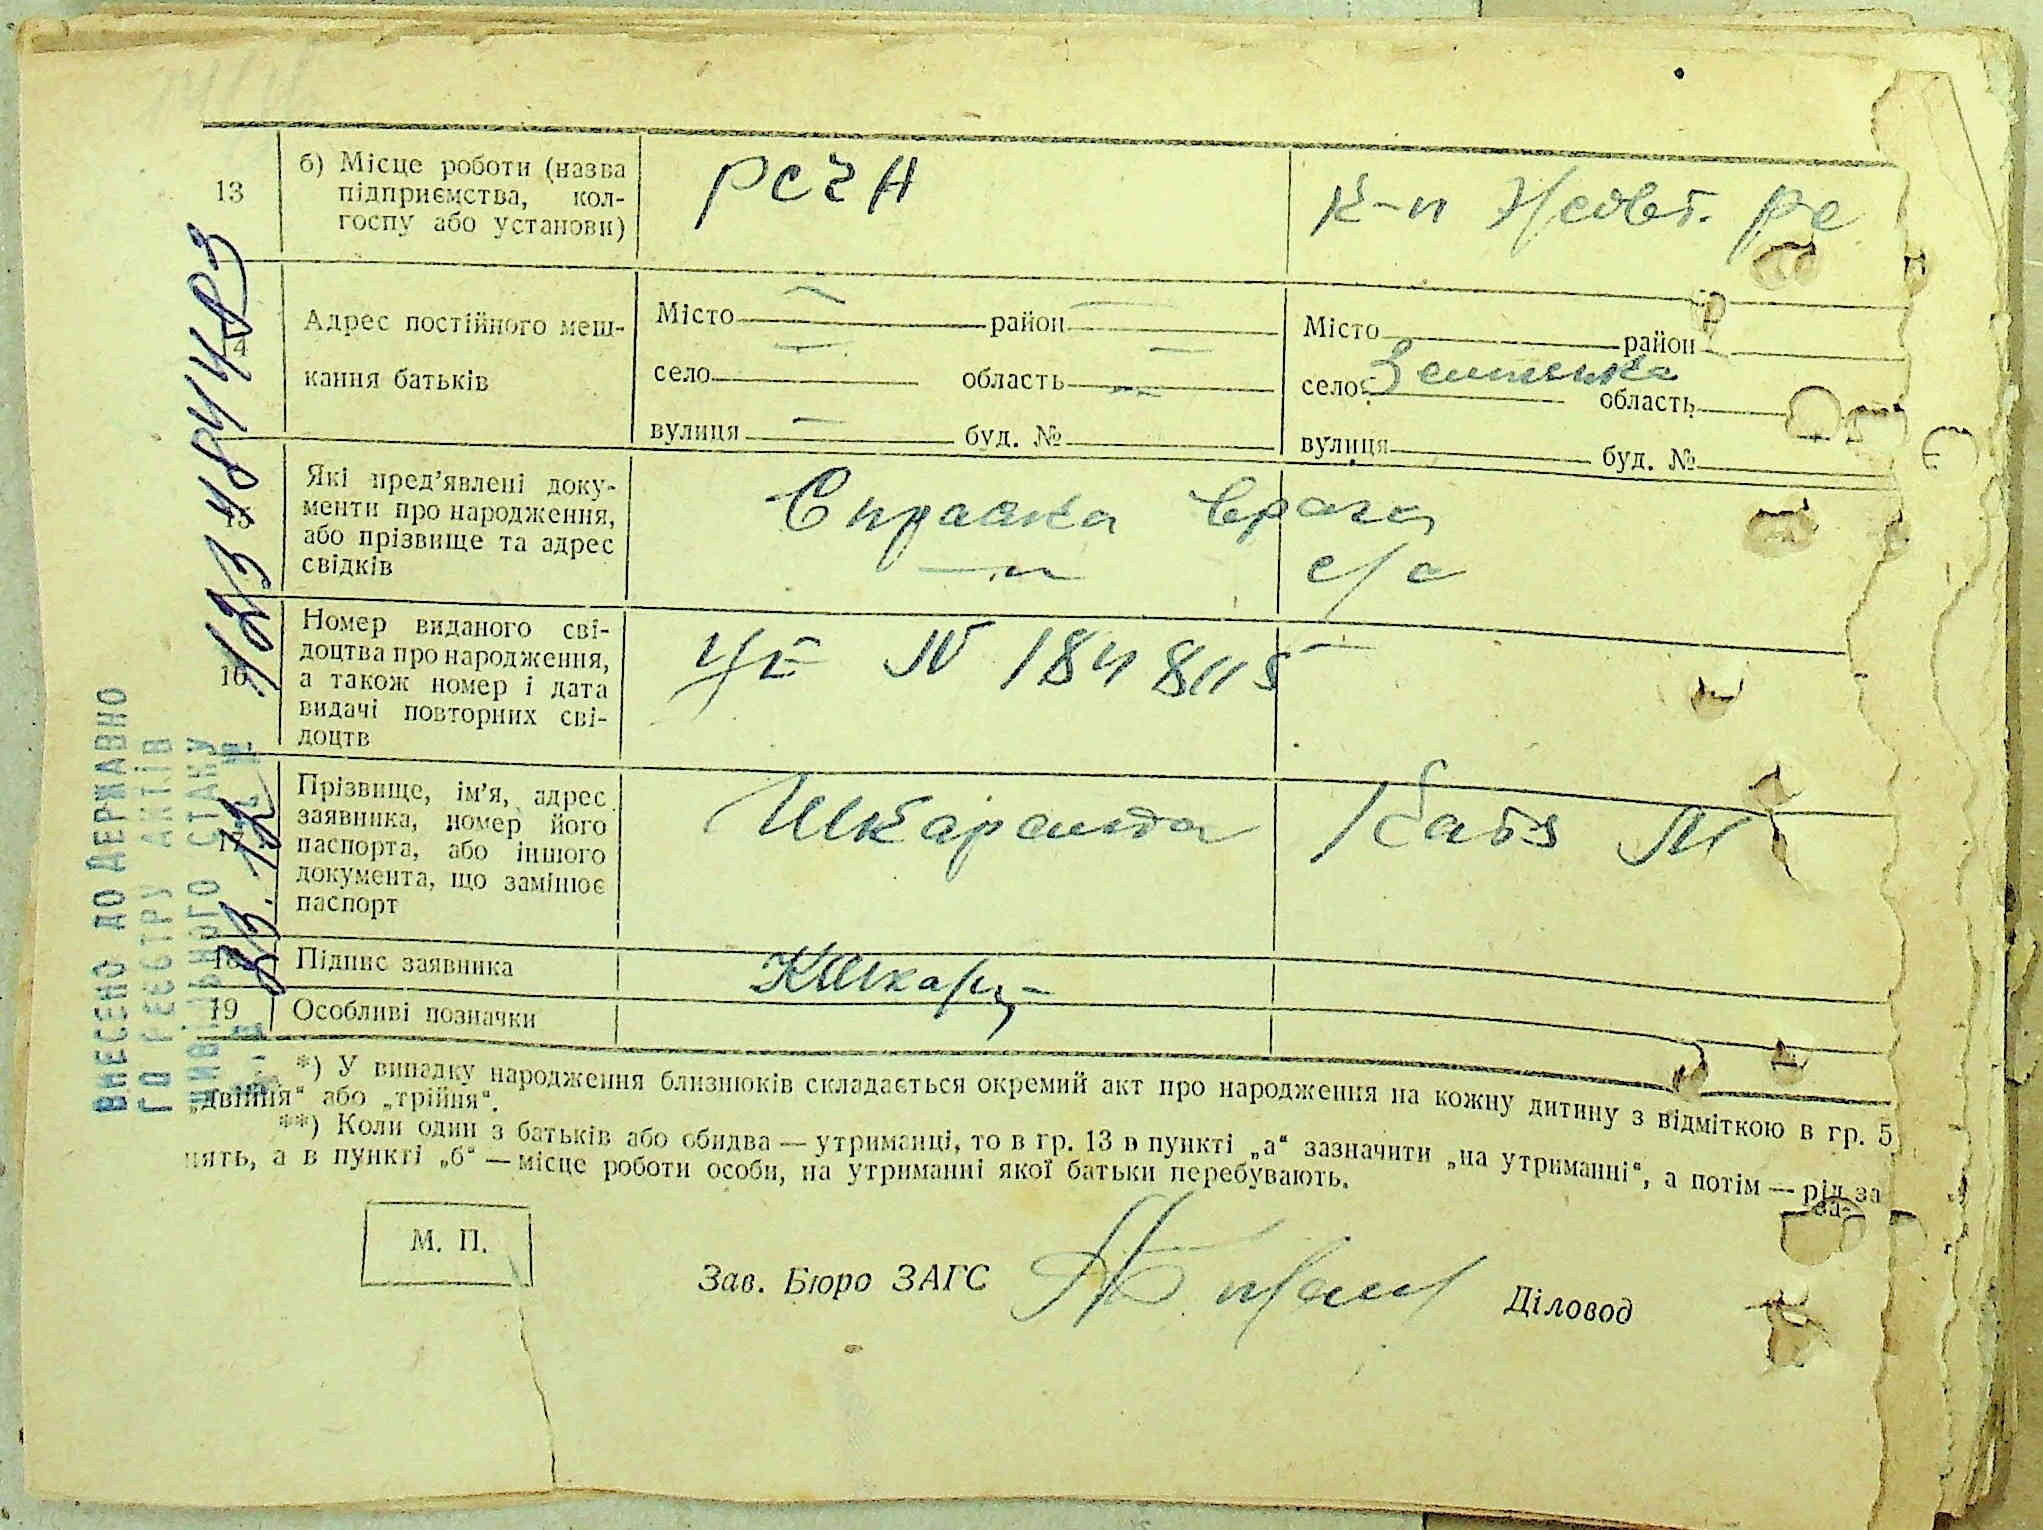 13
б) Місце роботи (назва
підприємства, кол-
госпу або установи)
РСЧА
к-п Жовт. ре
14
Адрес постійного меш-
кання батьків
Місто район
село область
вулиця буд. №
Місто район
село область
вулиця буд. №
15
Які пред’явлені доку-
менти про народження,
або прізвище та адрес
свідків
Справка врача
с/с
16
Номер виданого сві-
доцтва про народження,
а також номер і дата
видачі повторних сві-
доцтв
№ 184 8115
17
Прізвище, ім’я, адрес
заявника, номер його
паспорта, або іншого
документа, що замінює
паспорт
18
Підпис заявника
19
Особливі позначки
*) У випадку народження близнюків складається окремий акт про народження на кожну дитину з відміткою в гр. 5
„двійня“ або „трійня“.
**) Коли один з батьків або обидва — утриманці, то в гр. 13 в пункті „а“ зазначити „на утриманні“, а потім — рід за-
нять, а в пункті „б“ — місце роботи особи, на утриманні якої батьки перебувають.
М. П.
Зав. Бюро ЗАГС
Діловод
ВНЕСЕНО ДО ДЕРЖАВНО
ГО РЕЄСТРУ АКТІВ
ЦИВІЛЬНОГО СТАНУ